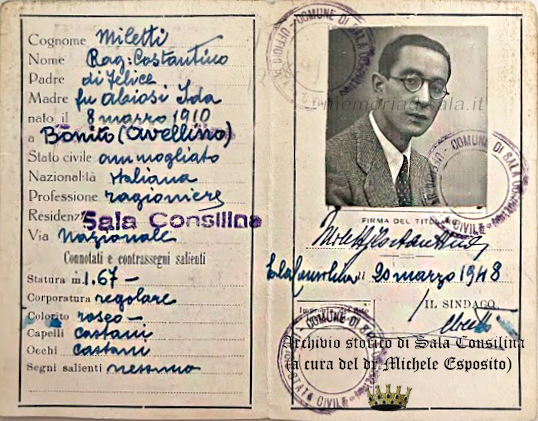 Cognome Miletti
Nome Rag: Costantino
Padre di Felice
Madre fu Abiosi Ida
nato il 8 marzo 1910
a Bonito (Avellino)
Stato civile ammogliato
Nazionalità Italiana
Professione ragioniere
Residenza Sala Consilina
Via Nazionale
Connotati e contrassegni salienti
Statura m. 1.67-
Corporatura regolare
Colorito roseo-
Capelli castani
Occhi castani
Segni salienti nessuno
COMUNE DI SALA
memoriadisala.it
COMUNE DI SALA CONS
CIVILE
FIRMA DEL TITOL
Miletti Costantino
Sala Consilina 20 marzo 1948
IL SINDACO
COMUNE DI SA
STATO CIVILE
Archivio storico di Sala Consilina
(a cura del dr Michele Esposito)